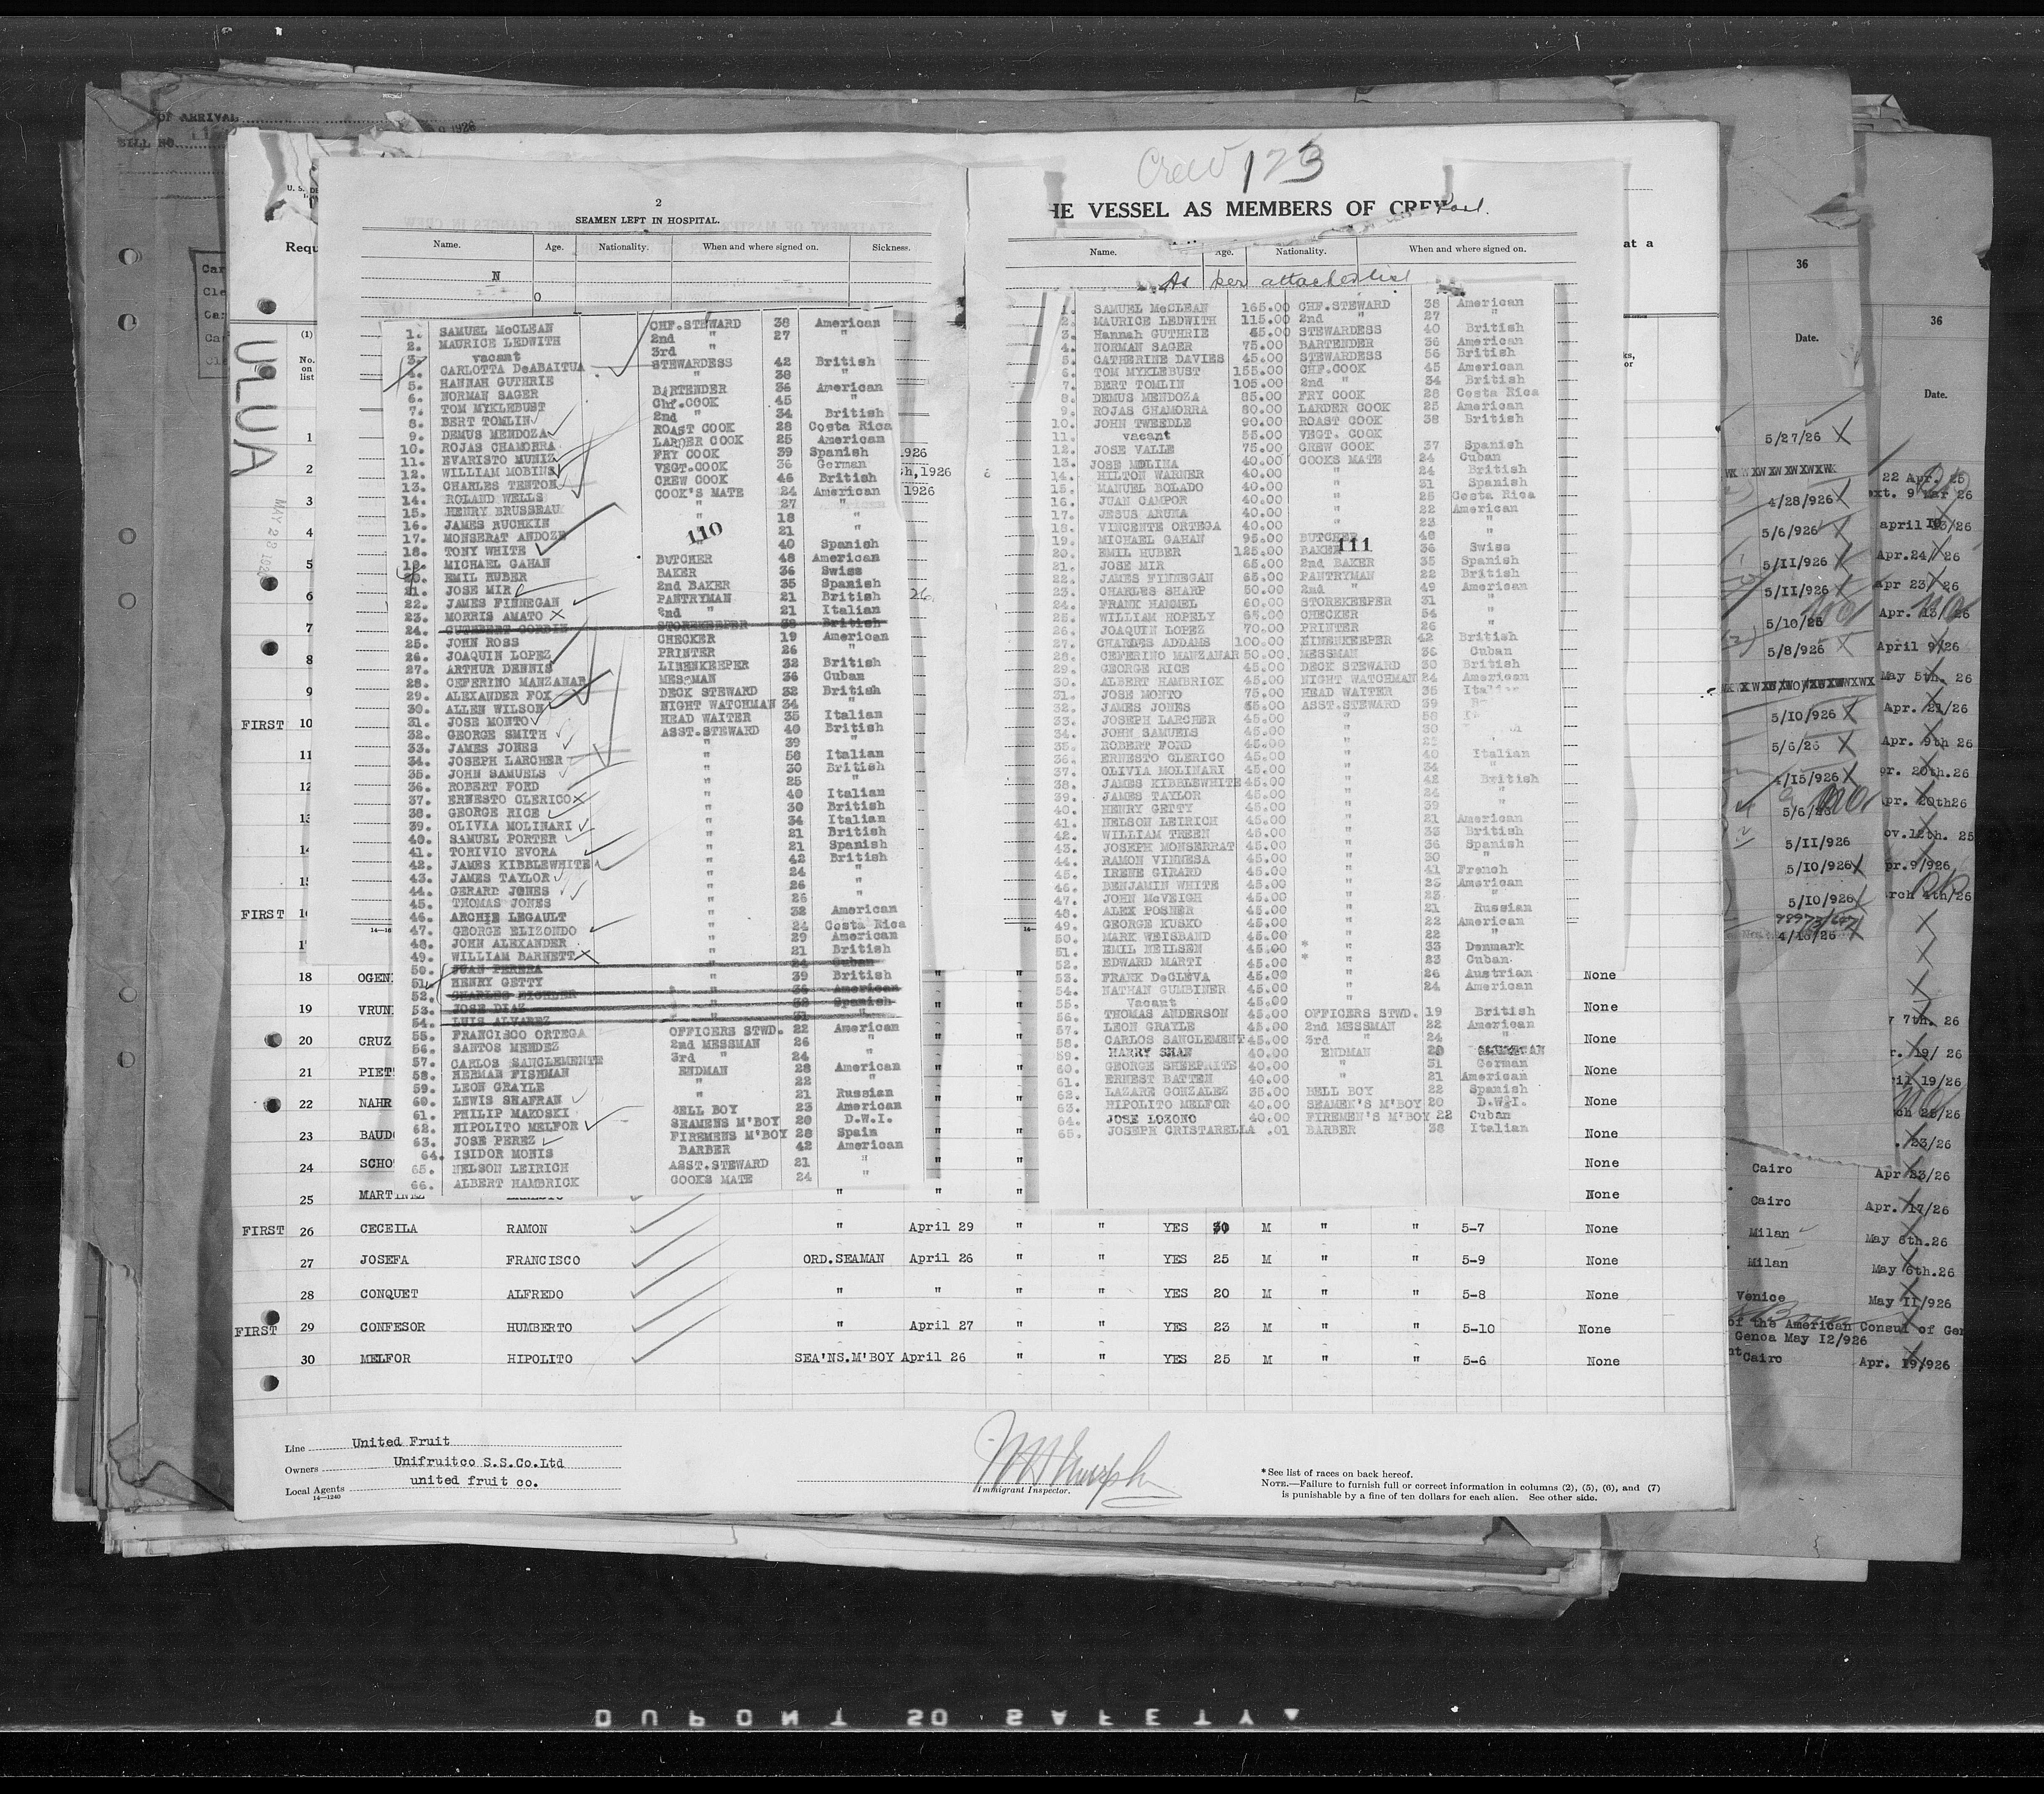 OF ARRIVAL
BILL NO
Crew 173
HE VESSEL AS MEMBERS OF CREW
ULUA
2
SEAMEN LEFT IN HOSPITAL.
Name. Age. Nationality. When and where signed on. Sickness.
N
O
1. SAMUEL McCLEAN CHF.STEWARD 38 American
2. MAURICE LEDWITH 2nd " 27 "
3. vacant 3rd "
4. CARLOTTA DeABAITUA STEWARDESS 42 British
5. HANNAH GUTHRIE " 38 "
6. NORMAN SAGER BARTENDER 36 American
7. TOM MYKLEBUST Chf.COOK 45 "
8. BERT TOMLIN 2nd " 34 British
9. DEMUS MENDOZA ROAST COOK 28 Costa Rica
10. ROJAS CHAMORRA LARDER COOK 25 American
11. EVARISTO MUNIZ FRY COOK 39 Spanish
12. WILLIAM MOBINS VEGT.COOK 36 German
13. CHARLES TENTON CREW COOK 46 British
14. ROLAND WELLS COOK'S MATE 24 American
15. HENRY BRUSSEAU " 27 "
16. JAMES RUCHKIN " 18 "
17. MONSERAT ANDOZE 21 "
18. TONY WHITE " 40 Spanish
19. MICHAEL GAHAN BUTCHER 48 American
20. EMIL HUBER BAKER 36 Swiss
21. JOSE MIR 2nd BAKER 35 Spanish
22. JAMES FINNEGAN PANTRYMAN 21 British
23. MORRIS AMATO 2nd " 21 Italian
24. CUTHBERT CORBIN STOREKEEPER 38 British
25. JOHN ROSS CHECKER 19 American
26. JOAQUIN LOPEZ PRINTER 26 "
27. ARTHUR DENNIS LINENKEEPER 32 British
28. CEFERINO MANZANAR MESSMAN 36 Cuban
29. ALEXANDER FOX DECK STEWARD 32 British
30. ALLEN WILSON NIGHT WATCHMAN 34 "
31. JOSE MONTO HEAD WAITER 35 Italian
32. GEORGE SMITH ASST.STEWARD 40 British
33. JAMES JONES " 39 "
34. JOSEPH LARCHER " 58 Italian
35. JOHN SAMUELS " 30 British
36. ROBERT FORD " 25 "
37. ERNESTO CLERICO " 40 Italian
38. GEORGE RICE " 30 British
39. OLIVIA MOLINARI " 34 Italian
40. SAMUEL PORTER " 21 British
41. TORIVIO EVORA " 21 Spanish
42. JAMES KIBBLEWHITE " 42 British
43. JAMES TAYLOR " 24 "
44. GERARD JONES " 26 "
45. THOMAS JONES " 26 "
46. ARCHIE LEGAULT " 32 American
47. GEORGE ELIZONDO " 24 Costa Rica
48. JOHN ALEXANDER " 29 American
49. WILLIAM BARNETT " 21 British
50. JUAN PERERA " 24 Cuban
51. HENRY GETTY " 39 British
52. CHARLES EICHLER " 36 American
53. JOSE DIAZ " 38 Spanish
54. LUIS ALVAREZ " 31 "
55. FRANCISCO ORTEGA OFFICERS STWD. 22 American
56. SANTOS MENDEZ 2nd MESSMAN 26 "
57. CARLOS SANCLEMENTE 3rd " 24 "
58. HERMAN FISHMAN ENDMAN 28 American
59. LEON GRAYLE " 22 "
60. LEWIS SHAFRAN " 21 Russian
61. PHILIP MAKOSKI BELL BOY 23 American
62. HIPOLITO MELFOR SEAMENS M'BOY 20 D.W.I.
63. JOSE PEREZ FIREMENS M'BOY 28 Spain
64. ISIDOR MONIS BARBER 42 American
65. NELSON LEIRICH ASST.STEWARD 21 "
66. ALBERT HAMBRICK COOKS MATE 24 "
110
Name. Age. Nationality. When and where signed on.
As per attached list
1. SAMUEL McCLEAN 165.00 CHF.STEWARD 38 American
2. MAURICE LEDWITH 115.00 2nd " 27 "
3. Hannah GUTHRIE 45.00 STEWARDESS 40 British
4. NORMAN SAGER 75.00 BARTENDER 36 American
5. CATHERINE DAVIES 45.00 STEWARDESS 56 British
6. TOM MYKLEBUST 155.00 CHF.COOK 45 American
7. BERT TOMLIN 105.00 2nd " 34 British
8. DEMUS MENDOZA 85.00 FRY COOK 28 Costa Rica
9. ROJAS CHAMORRA 80.00 LARDER COOK 25 American
10. JOHN TWEEDLE 90.00 ROAST COOK 38 British
11. vacant 55.00 VEGT. COOK
12. JOSE VALLE 75.00 CREW COOK 37 Spanish
13. JOSE MOLINA 40.00 COOKS MATE 24 Cuban
14. HILTON WARNER 40.00 " 24 British
15. MANUEL BOLADO 40.00 " 31 Spanish
16. JUAN CAMPOR 40.00 " 25 Costa Rica
17. JESUS ARUNA 40.00 " 22 American
18. VINCENTE ORTEGA 40.00 " 23 "
19. MICHAEL GAHAN 95.00 BUTCHER 48 "
20. EMIL HUBER 125.00 BAKER 36 Swiss
21. JOSE MIR 65.00 2nd BAKER 35 Spanish
22. JAMES FINNEGAN 65.00 PANTRYMAN 22 British
23. CHARLES SHARP 50.00 2nd " 49 American
24. FRANK HAMMEL 60.00 STOREKEEPER 31 "
25. WILLIAM HOPELY 65.00 CHECKER 54 "
26. JOAQUIN LOPEZ 70.00 PRINTER 26 "
27. CHARLES ADDAMS 100.00 LINENKEEPER 42 British
28. CEFERINO MANZANAR 50.00 MESSMAN 36 Cuban
29. GEORGE RICE 45.00 DECK STEWARD 30 British
30. ALBERT HAMBRICK 45.00 NIGHT WATCHMAN 24 American
31. JOSE MONTO 75.00 HEAD WAITER 35 Italian
32. JAMES JONES 55.00 ASST.STEWARD 39
33. JOSEPH LARCHER 45.00 " 58
34. JOHN SAMUELS 45.00 " 30
35. ROBERT FORD 45.00 " 25
36. ERNESTO CLERICO 45.00 " 40 Italian
37. OLIVIA MOLINARI 45.00 " 34 "
38. JAMES KIBBLEWHITE 45.00 " 42 British
39. JAMES TAYLOR 45.00 " 24 "
40. HENRY GETTY 45.00 " 39 "
41. NELSON LEIRICH 45.00 " 21 American
42. WILLIAM TREEN 45.00 " 33 British
43. JOSEPH MONSERRAT 45.00 " 36 Spanish
44. RAMON VINNESA 45.00 " 30 "
45. IRENE GIRARD 45.00 " 41 French
46. BENJAMIN WHITE 45.00 " 25 American
47. JOHN McVEIGH 45.00 " 23 "
48. ALEX POSNER 45.00 " 21 Russian
49. GEORGE KUSKO 45.00 " 22 American
50. MARK WEISBAND 45.00 " 22 "
51. EMIL NEILSEN 45.00 * " 33 Denmark
52. EDWARD MARTI 45.00 * " 23 Cuban
53. FRANK DeCLEVA 45.00 " 26 Austrian
54. NATHAN GUMBINER 45.00 " 24 American
55. Vacant 45.00 "
56. THOMAS ANDERSON 45.00 OFFICERS STWD. 19 British
57. LEON GRAYLE 45.00 2nd MESSMAN 22 American
58. CARLOS SANCLEMENT 45.00 3rd " 24 "
59. HARRY SHAN 40.00 ENDMAN
60. GEORGE SHEEPRITE 40.00 " 31 German
61. ERNEST BATTEN 40.00 " 21 American
62. LAZARE GONZALEZ 35.00 BELL BOY 22 Spanish
63. HIPOLITO MELFOR 40.00 SEAMEN'S M'BOY 20 D.W.I.
64. JOSE LOZONO 40.00 FIREMEN'S M'BOY 22 Cuban
65. JOSEPH CRISTARELLA .01 BARBER 38 Italian
111
18 OGEN None
19 VRUN None
20 CRUZ None
21 PIET None
22 NAHR None
23 BAUD None
24 SCHO None
25 MARTINEZ ERNESTO " " " " None
FIRST 26 CECEILA RAMON " April 29 " " YES 30 M " " 5-7 None
27 JOSEFA FRANCISCO ORD.SEAMAN April 26 " " YES 25 M " " 5-9 None
28 CONQUET ALFREDO " " " " YES 20 M " " 5-8 None
FIRST 29 CONFESOR HUMBERTO " April 27 " " YES 23 M " " 5-10 None
30 MELFOR HIPOLITO SEA'NS.M'BOY April 26 " " YES 25 M " " 5-6 None
Line United Fruit
Owners Unifruitco S.S.Co.Ltd
Local Agents united fruit co.
14—1240
Immigrant Inspector.
* See list of races on back hereof.
NOTE.—Failure to furnish full or correct information in columns (2), (5), (6), and (7)
is punishable by a fine of ten dollars for each alien. See other side.
36
Date.
5/27/26
4/28/926
5/6/926
5/11/926
5/11/926
5/10/25
5/8/926
5/10/926
5/6/26
4/15/926
5/6/26
5/11/926
5/10/926
5/10/926
4/16/26
36
Date.
22 Apr. 25
ext. 9 Mar 26
april 13/26
Apr.24/26
Apr 23/26
Apr. 13/26
April 9/26
May 5th. 26
Apr. 21/26
Apr. 9th 26
pr. 20th.26
pr. 20th26
ov.12th. 25
pr.9/926
arch 4th/26
y 7th. 26
r. 19/ 26
ril 19/26
rch 25/26
. 23/26
Cairo Apr 23/26
Cairo Apr. 17/26
Milan May 6th.26
Milan May 6th.26
Venice May 11/926
of the American Consul of Gen
Genoa May 12/926
Cairo Apr. 19/926
DUPONT SO SAFETY